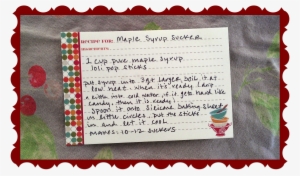 RECIPE FOR: Maple Syrup Sucker
INGREDIENTS:
1 cup pure maple syrup
loli pop sticks
put syrup into 3qt larger, boil it at
low heat. when it's ready (drop
a little into cold water, it is gets hard like
candy, then it is ready)
Spoon it onto Silicone baking sheet
in little circles. put the sticks
in and let it cool
Makes: 10-12 suckers